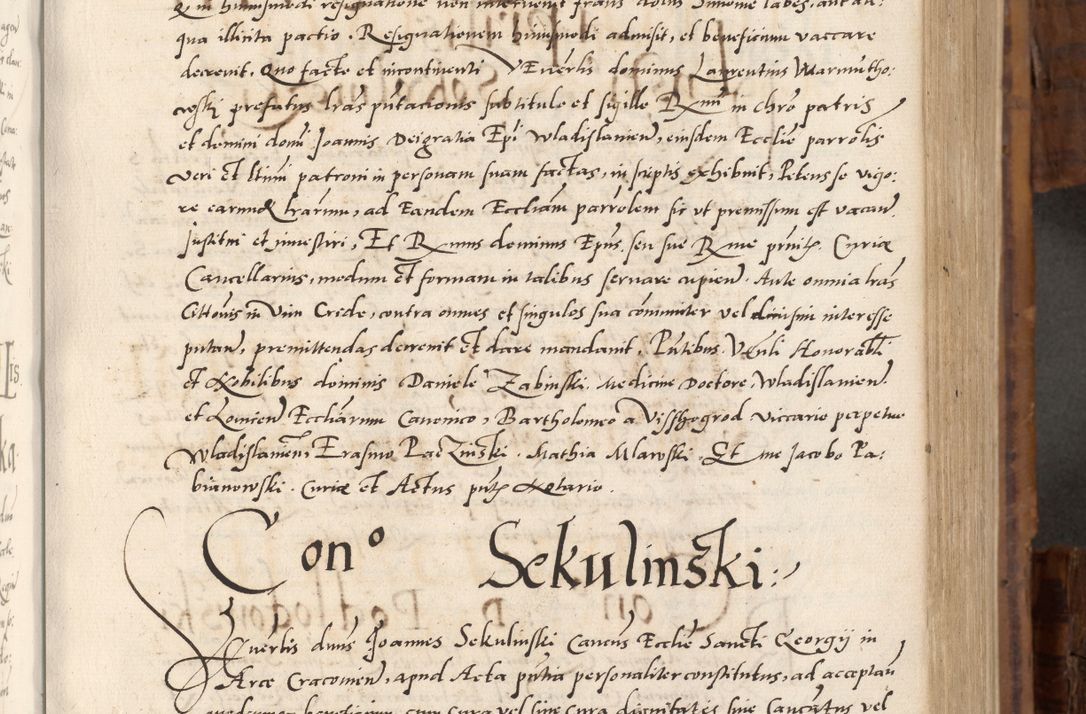 qua illicita pactio. Resignationem huiusmodi admisit, et beneficium vaccare
decrevit, Quo facto et incontinenti Venerlis dominus Laurentius Warmutho:
ceski prefatus lras putationis subtitulo et sigillo Rmi in chro patris
et domini domi Joannis Deigratia Epi Wladislavien, eiusdem Ecclie parrolis
veri Et ltimi patroni in personam suam factas, in scriptis exhibuit, Petens se vigo:
re earundem lrarum, ad Eandem Eccliam parrolem sic ut premissum est vacan
Justitui et investiri, Et Rmus dominus Epus, seu sue Rme pruitis Curiæ
Cancellarius, modum Et formam in talibus servare cupien. Ante omnia lras
Cittonis in Vim Cride, contra omnes et singulos sua coniuniter vel divisim interesse
putan, premittendas decrevit Et dare mandavit, Pntibus Venli Honorabli
et Nobilibus dominis Daniele Zabinski Medicine Doctore, Wladislavien
et Lovicien Eccliarum Canonico, Bartholomeo a Visshogrod viccario perpetuo
Wladislavieni Erasmo Paczinski. Mathia Mlawski. Et me Jacobo Pa-
bianowski. Curiæ et Actus putis Notario.
Con° Sekulinski:
Venerlis dnus Joannes Sekulinski Cancus Ecclie Sancti Georgij in
Arce Cracovien, apud Acta pntia personaliter constitutus, ad acceptan
quodcumque beneficium cum cura vel sine cura dignitatis sine Canonicatus vel